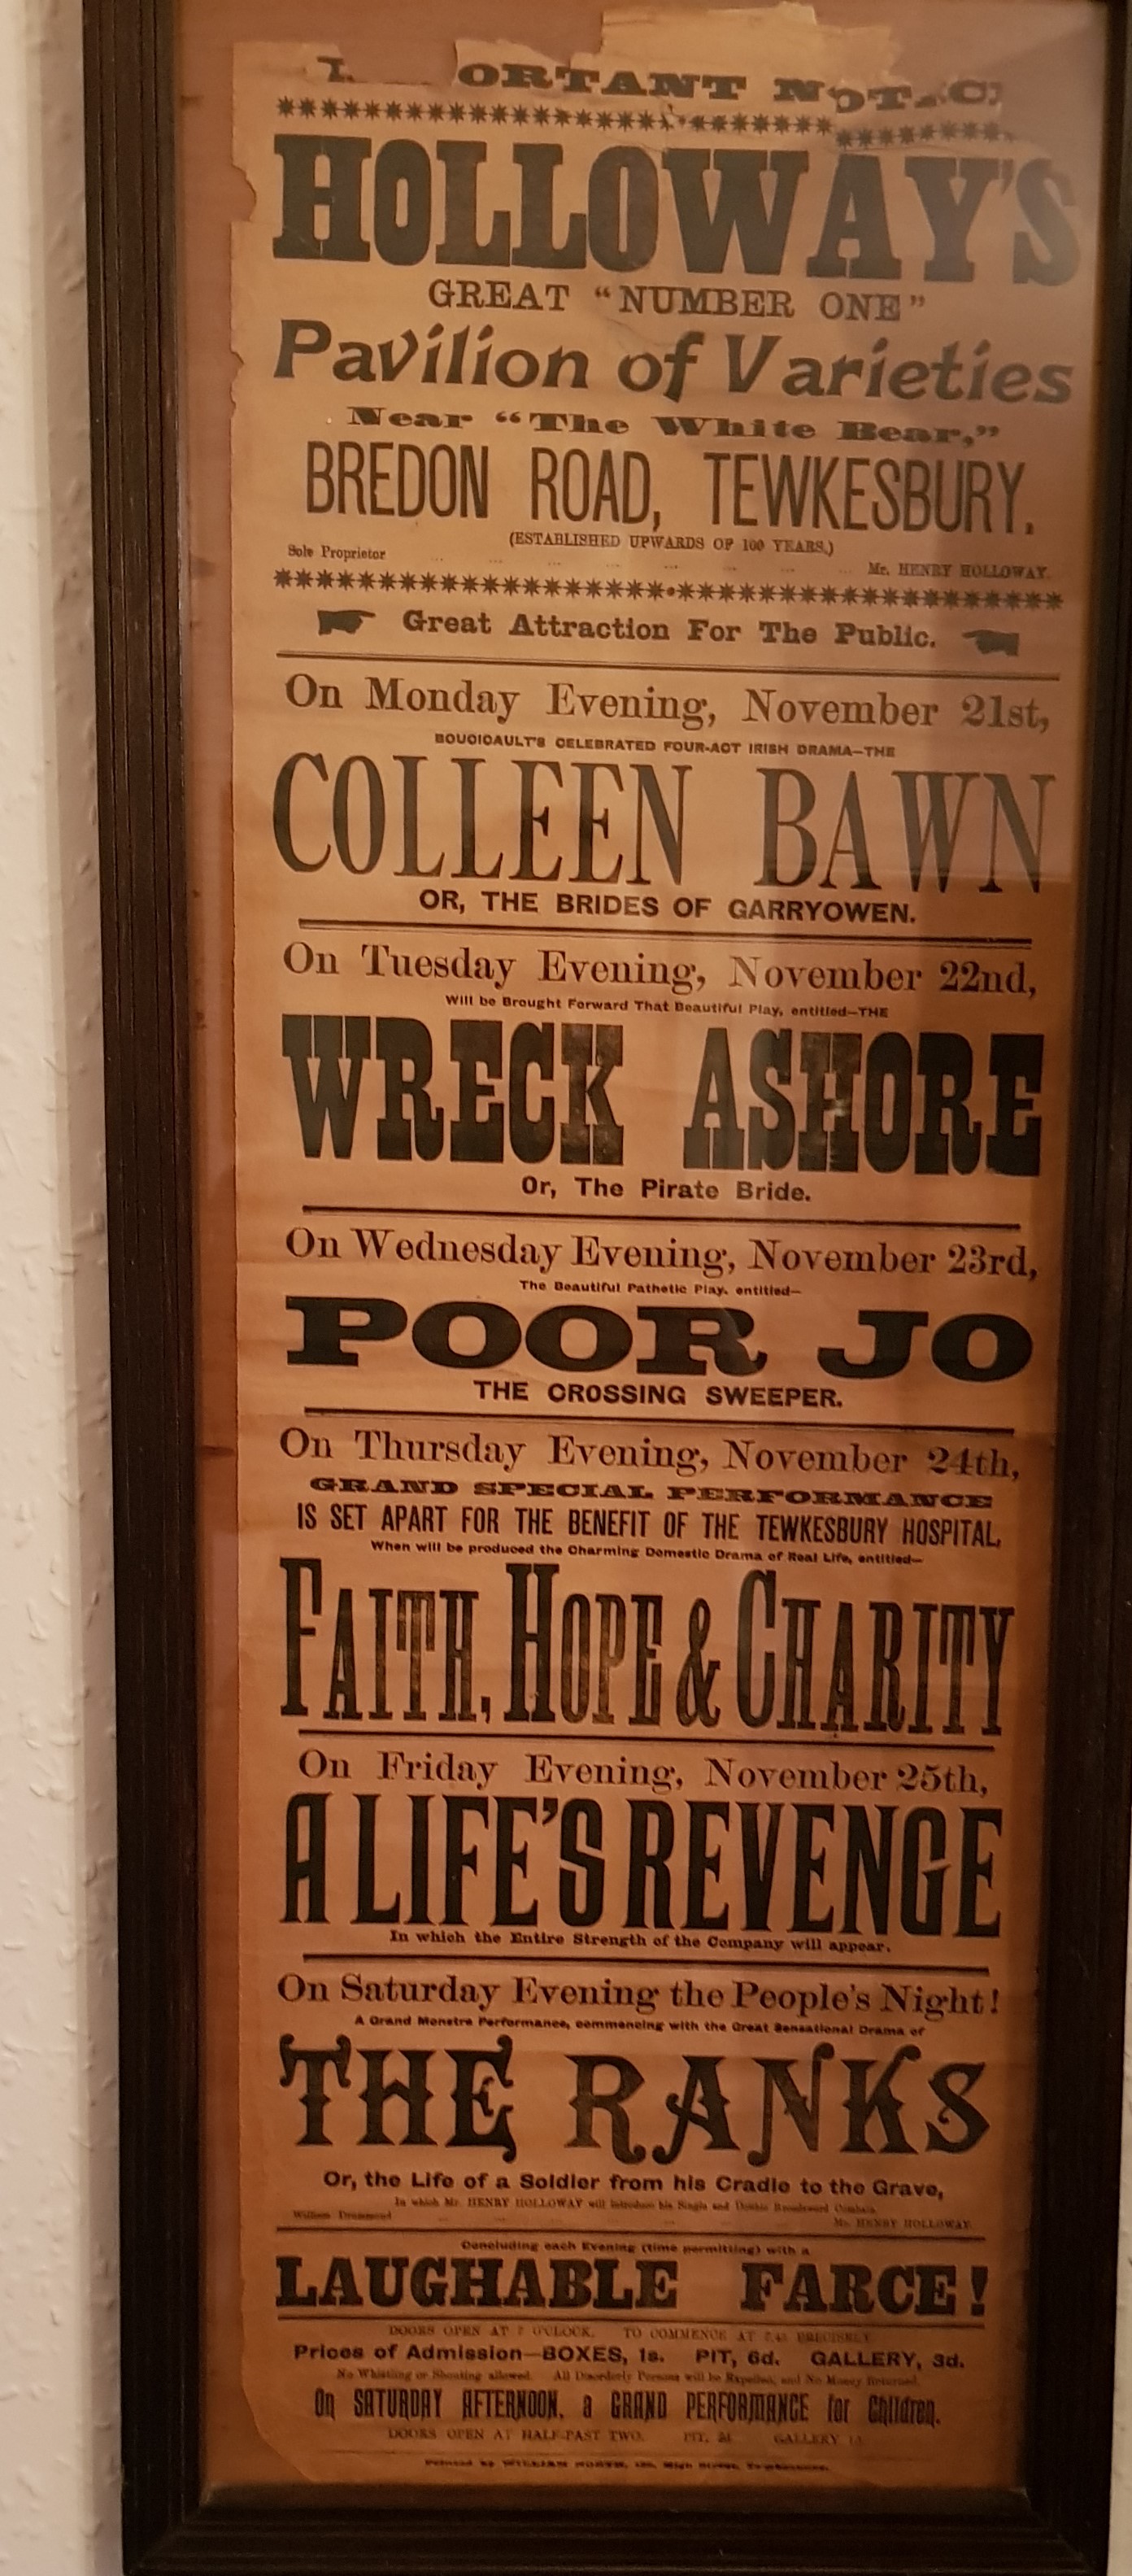 ORTANT
HOLLOWAY'S
GREAT "NUMBER ONE"
Pavilion of Varieties
Near "The White Bear,"
BREDON ROAD, TEWKESBURY.
(ESTABLISHED UPWARDS OF 100 YEARS.)
Sole Proprietor ... ... ... ... ... ... Mr. HENRY HOLLOWAY.
Great Attraction For The Public.
On Monday Evening, November 21st,
BOUCICAULT'S CELEBRATED FOUR-ACT IRISH DRAMA—THE
COLLEEN BAWN
OR, THE BRIDES OF GARRYOWEN.
On Tuesday Evening, November 22nd,
Will be Brought Forward That Beautiful Play, entitled—THE
WRECK ASHORE
Or, The Pirate Bride.
On Wednesday Evening, November 23rd,
The Beautiful Pathetic Play, entitled—
POOR JO
THE CROSSING SWEEPER.
On Thursday Evening, November 24th,
GRAND SPECIAL PERFORMANCE
IS SET APART FOR THE BENEFIT OF THE TEWKESBURY HOSPITAL,
When will be produced the Charming Domestic Drama of Real Life, entitled—
FAITH, HOPE & CHARITY
On Friday Evening, November 25th,
A LIFE'S REVENGE
In which the Entire Strength of the Company will appear.
On Saturday Evening the People's Night!
A Grand Monstre Performance, commencing with the Great Sensational Drama of
THE RANKS
Or, the Life of a Soldier from his Cradle to the Grave,
In which Mr. HENRY HOLLOWAY will introduce his Single and Double Broadsword Combats.
William Drummond ... Mr. HENRY HOLLOWAY.
Concluding each Evening (time permitting) with a
LAUGHABLE FARCE!
DOORS OPEN AT 7 O'CLOCK. TO COMMENCE AT 7.45 PRECISELY.
Prices of Admission—BOXES, 1s. PIT, 6d. GALLERY, 3d.
No Whistling or Shouting allowed. All Disorderly Persons will be Expelled, and No Money Returned.
On SATURDAY AFTERNOON, a GRAND PERFORMANCE for Children.
DOORS OPEN AT HALF-PAST TWO. PIT, GALLERY
Printed by WILLIAM NORTH, High Street, Tewkesbury.